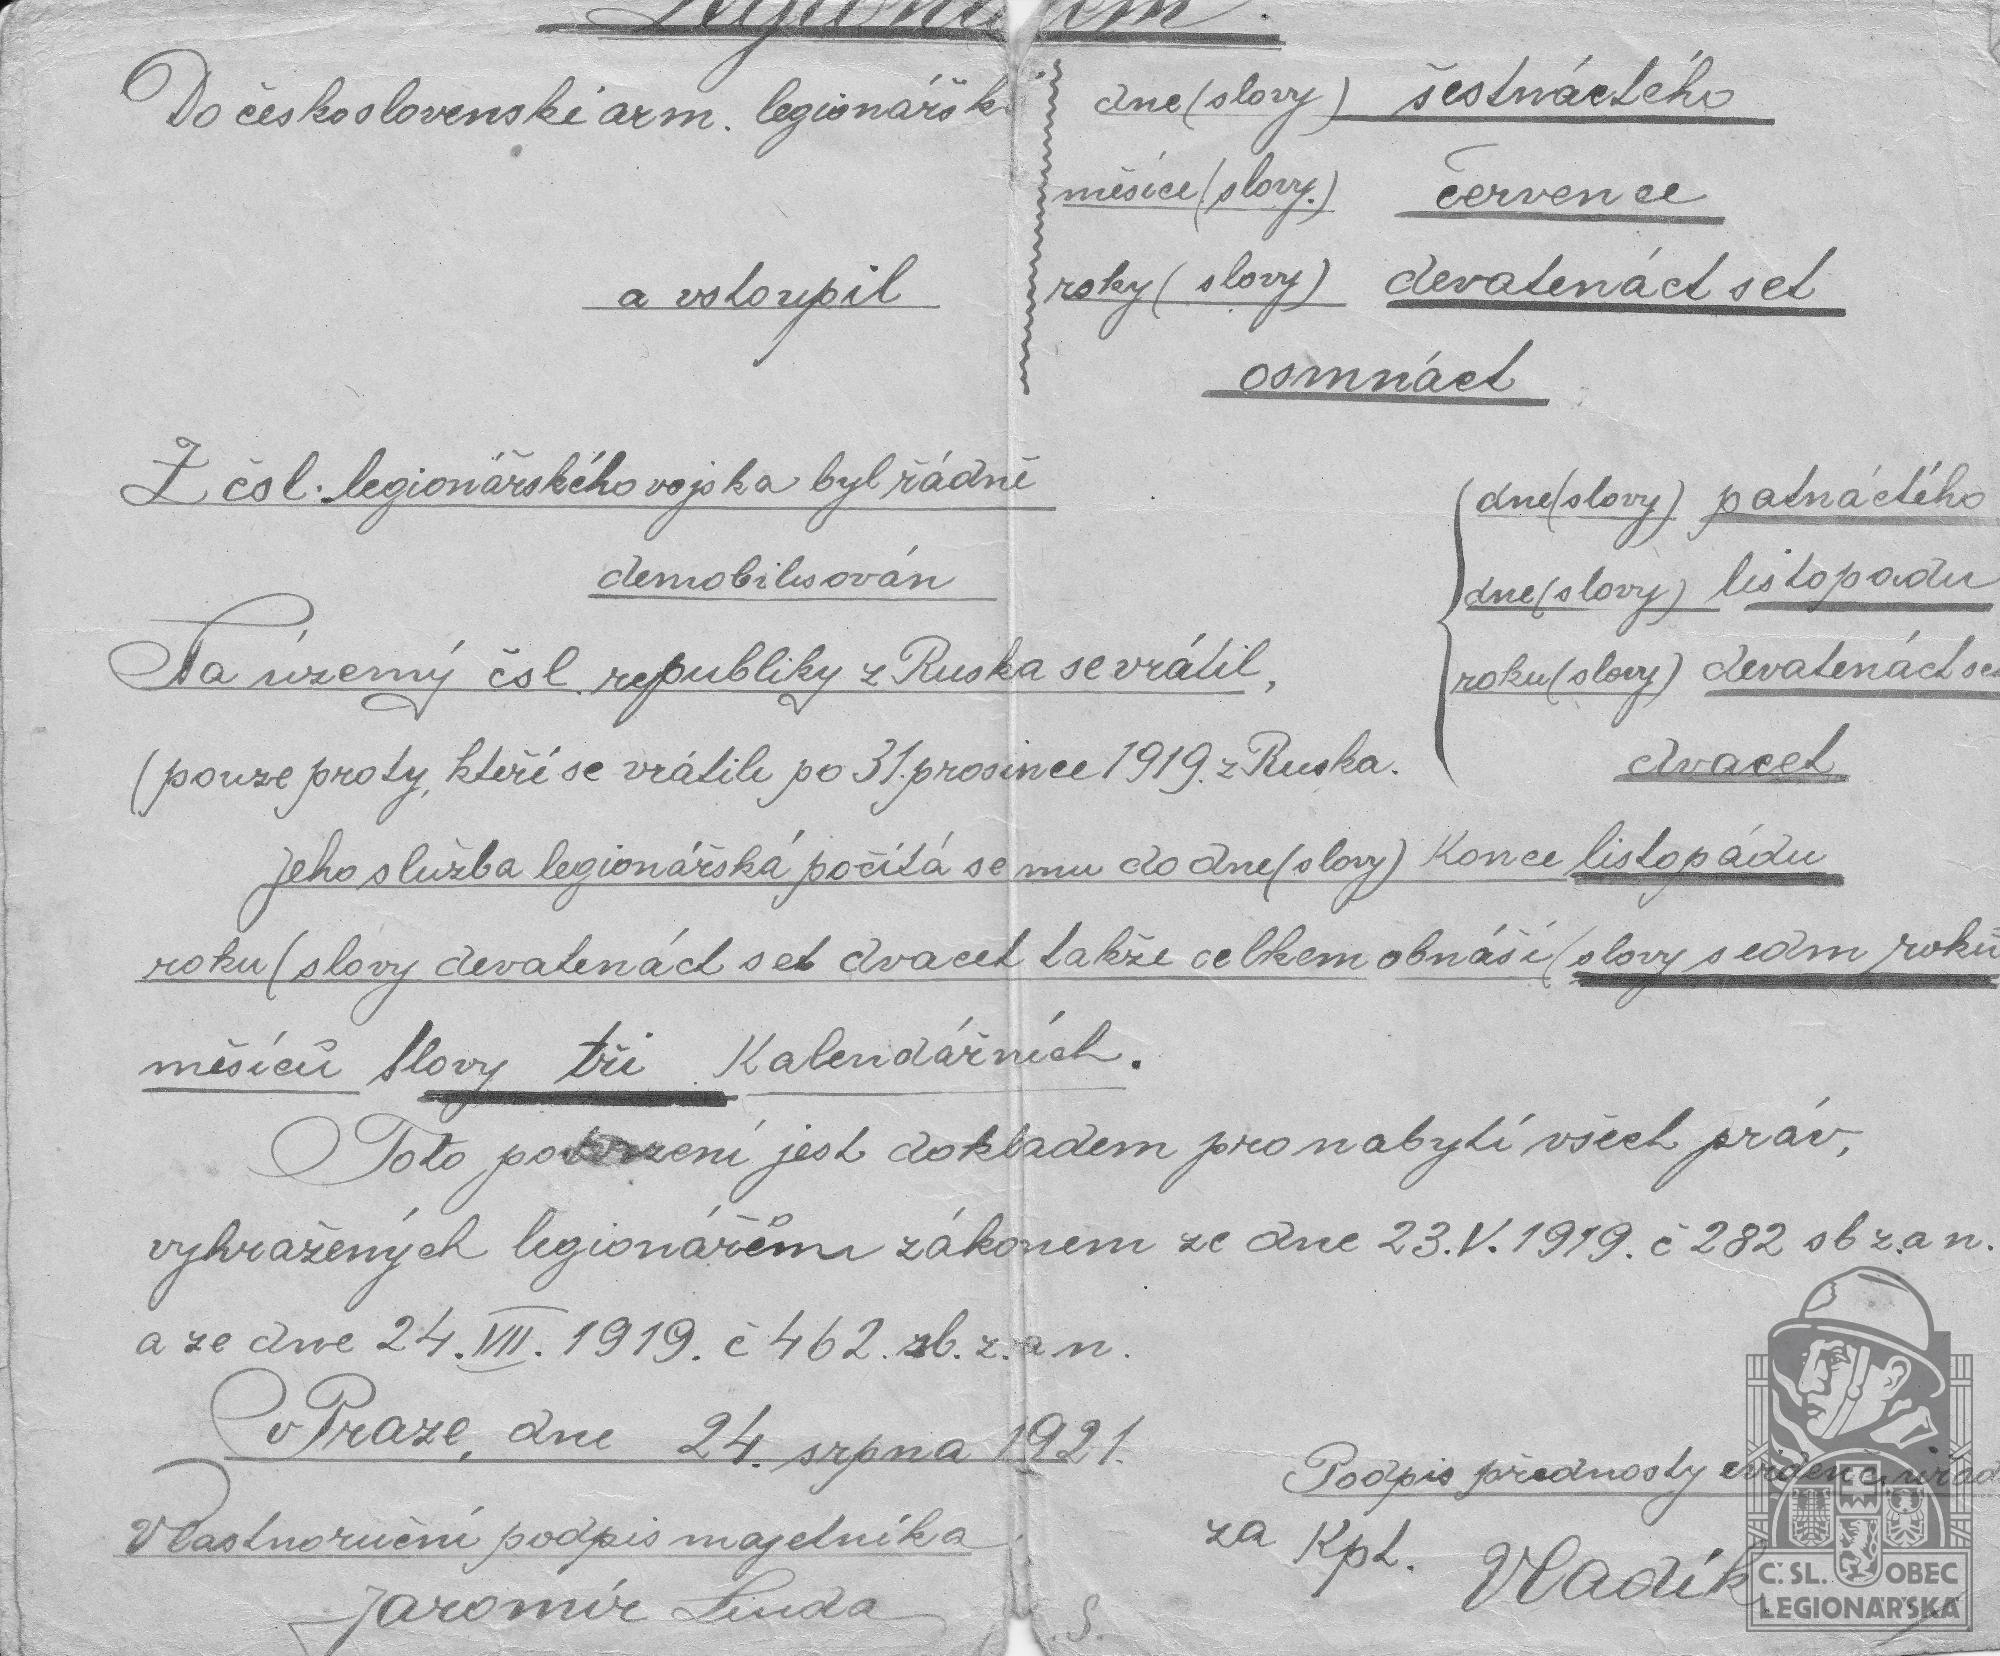 Legionářem.
Do československé arm. legionářsk
dne (slovy) šestnáctého
měsíce (slovy.) července
a vstoupil
roky (slovy) devatenáct set
osmnáct
Z čsl. legionářského vojska byl řádně
demobilisován
Na územý čsl. republiky z Ruska se vrátil,
(pouze proty, kteří se vrátili po 31. prosince 1919. z Ruska.
dne (slovy) patnáctého
dne (slovy) listopadu
roku (slovy) devatenáct set
dvacet
Jeho služba legionářská počítá se mu do dne (slovy) Konce listopádu
roku (slovy devatenáct set dvacet takže celkem obnáší (slovy sedm roků
měsíců slovy tři Kalendářních.
Toto potvrzení jest dokladem pro nabytí všech práv,
vyhražených legionářům zákonem ze dne 23. V. 1919. č 282 sb z. a n.
a ze dne 24. VII. 1919. č 462. sb. z. a n.
v Praze, dne 24. srpna 1921.
Podpis přednosty evidenč. úřad
Vlastnoruční podpis majetníka
za Kpt. Vladík
Jaromír Linda
L. S.
Č. SL. OBEC
LEGIONÁŘSKÁ